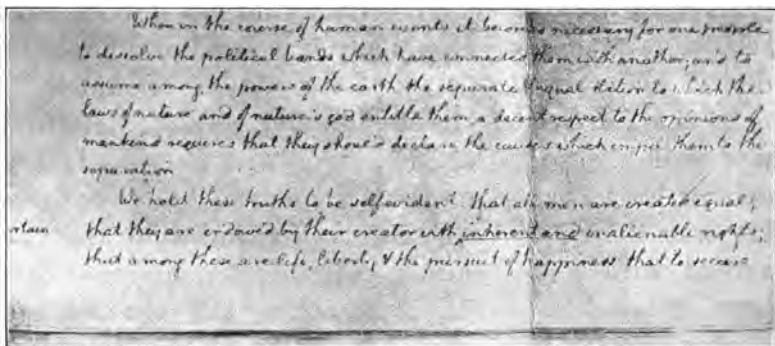 When in the course of human events it becomes necessary for one people
to dissolve the political bands which have connected them with another, and to
assume among the powers of the earth the separate & equal station to which the
laws of nature and of nature's god entitle them, a decent respect to the opinions of
mankind requires that they should declare the causes which impel them to the
separation
We hold these truths to be self evident that all men are created equal;
rtain that they are endowed by their creator with inherent and inalienable rights;
that among these are life, liberty, & the pursuit of happiness that to secure